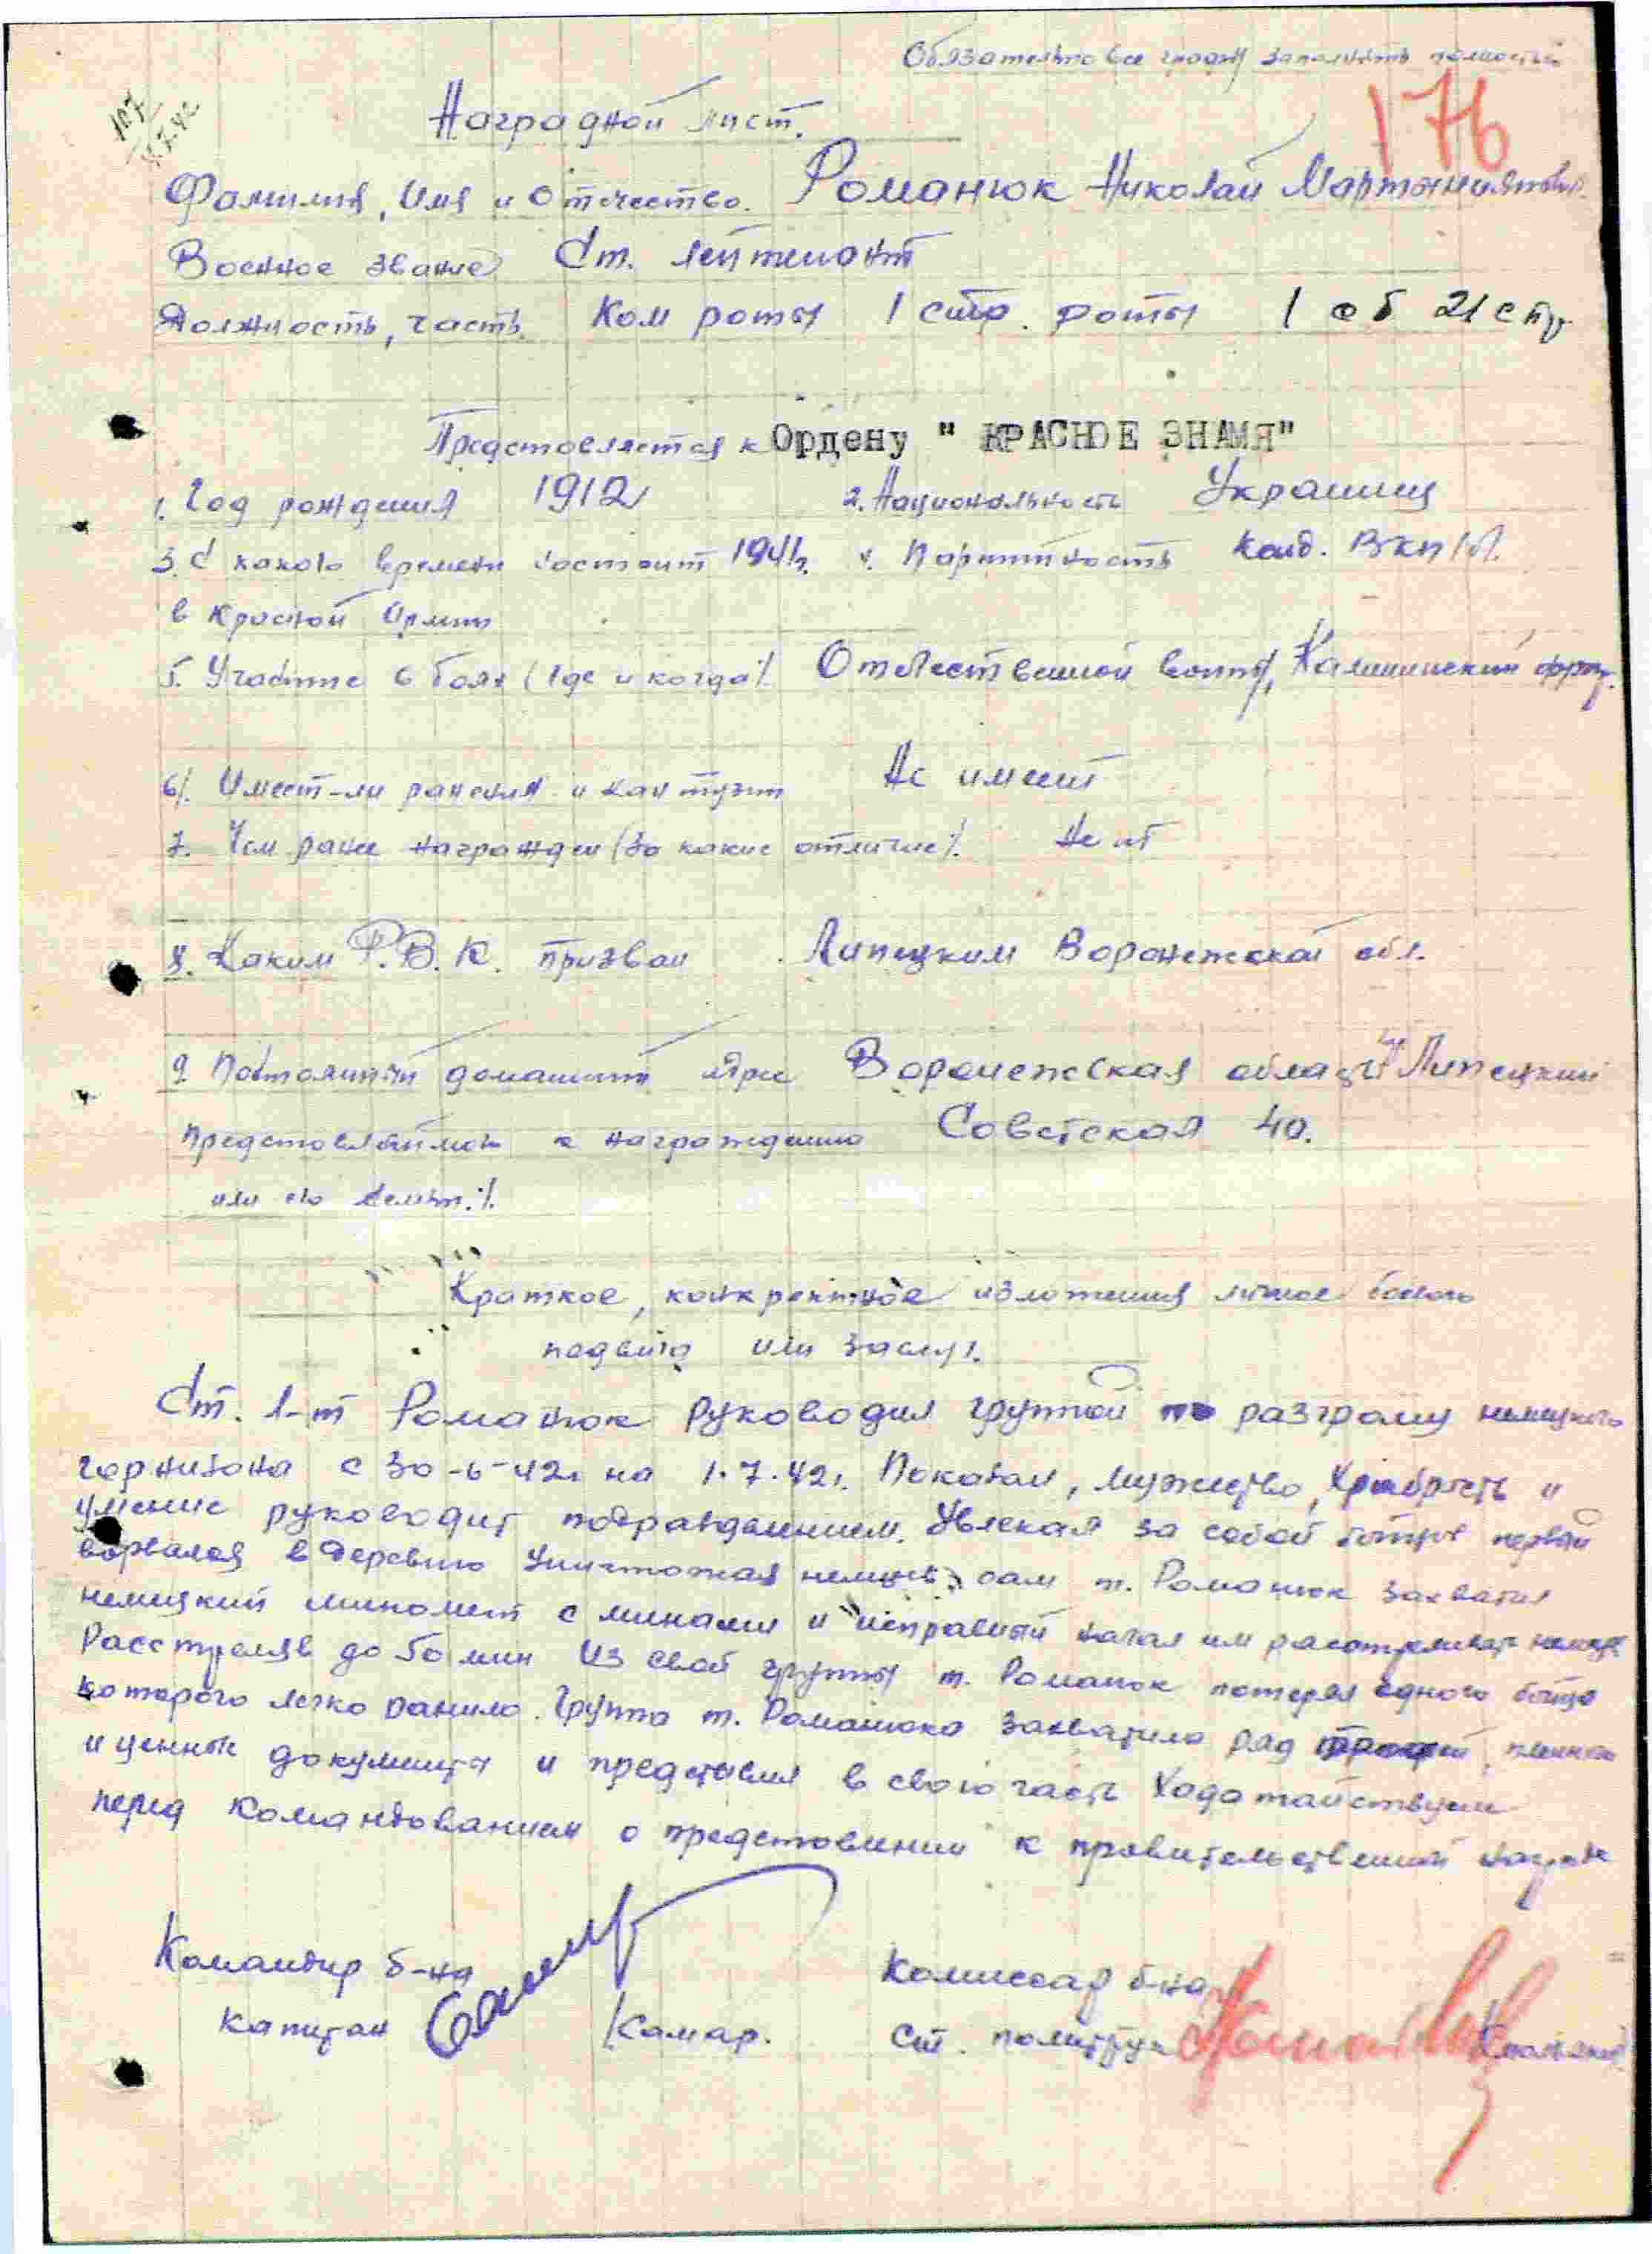 Обязательно все графы заполнять полностью
176
Наградной лист.
Фамилия, Имя и Отчество. Романюк Николай
Военное звание Ст. лейтенант
Должность, часть. Ком роты 1 стр. роты 1 сб 21 сп
Представляется к Ордену " КРАСНОЕ ЗНАМЯ"
1. Год рождения 1912 2. Национальность Украинец
3. С какого времени состоит 1941г. 4. Партийность Канд. ВКП/б/.
в Красной Армии
5. Участие в боях (где и когда/. Отечественной войны, Калининский фрон.
6/. Имеет-ли ранения и контузии Не имеет
7. Чем ранее награжден (за какие отличие/. Нет
8. Каким Р.В.К. призван Липецким Воронежской обл.
9. Постоянный домашний адрес Воронежская область Липецкий
представляемого к награждению Советская 40.
или его семьи./.
Краткое, конкретное изложения личное боевого
подвига или заслуг.
Ст. л-т Романюк руководил группой по разгрому немецкого
гарнизона с 30-6-42г. на 1.7.42г. Показал, мужество, храбрость и
умение руководит подразделением. Увлекая за собой бойцов первый
ворвался в деревню уничтожая немцев, сам т. Романюк захватил
немецкий миномет с минами и исправный начал им расстреливать немцев
Расстреляв до 50 мин Из свой группы т. Романюк потерял одного бойца
которого легко ранило. Группа т. Романюка захватила ряд трофей,
и ценные документы и представил в свою часть Ходатайствуем
перед командованием о представлении к правительственной награде
Командир б-на Комиссар б-на
Капитан /Камар. Ст. политрук